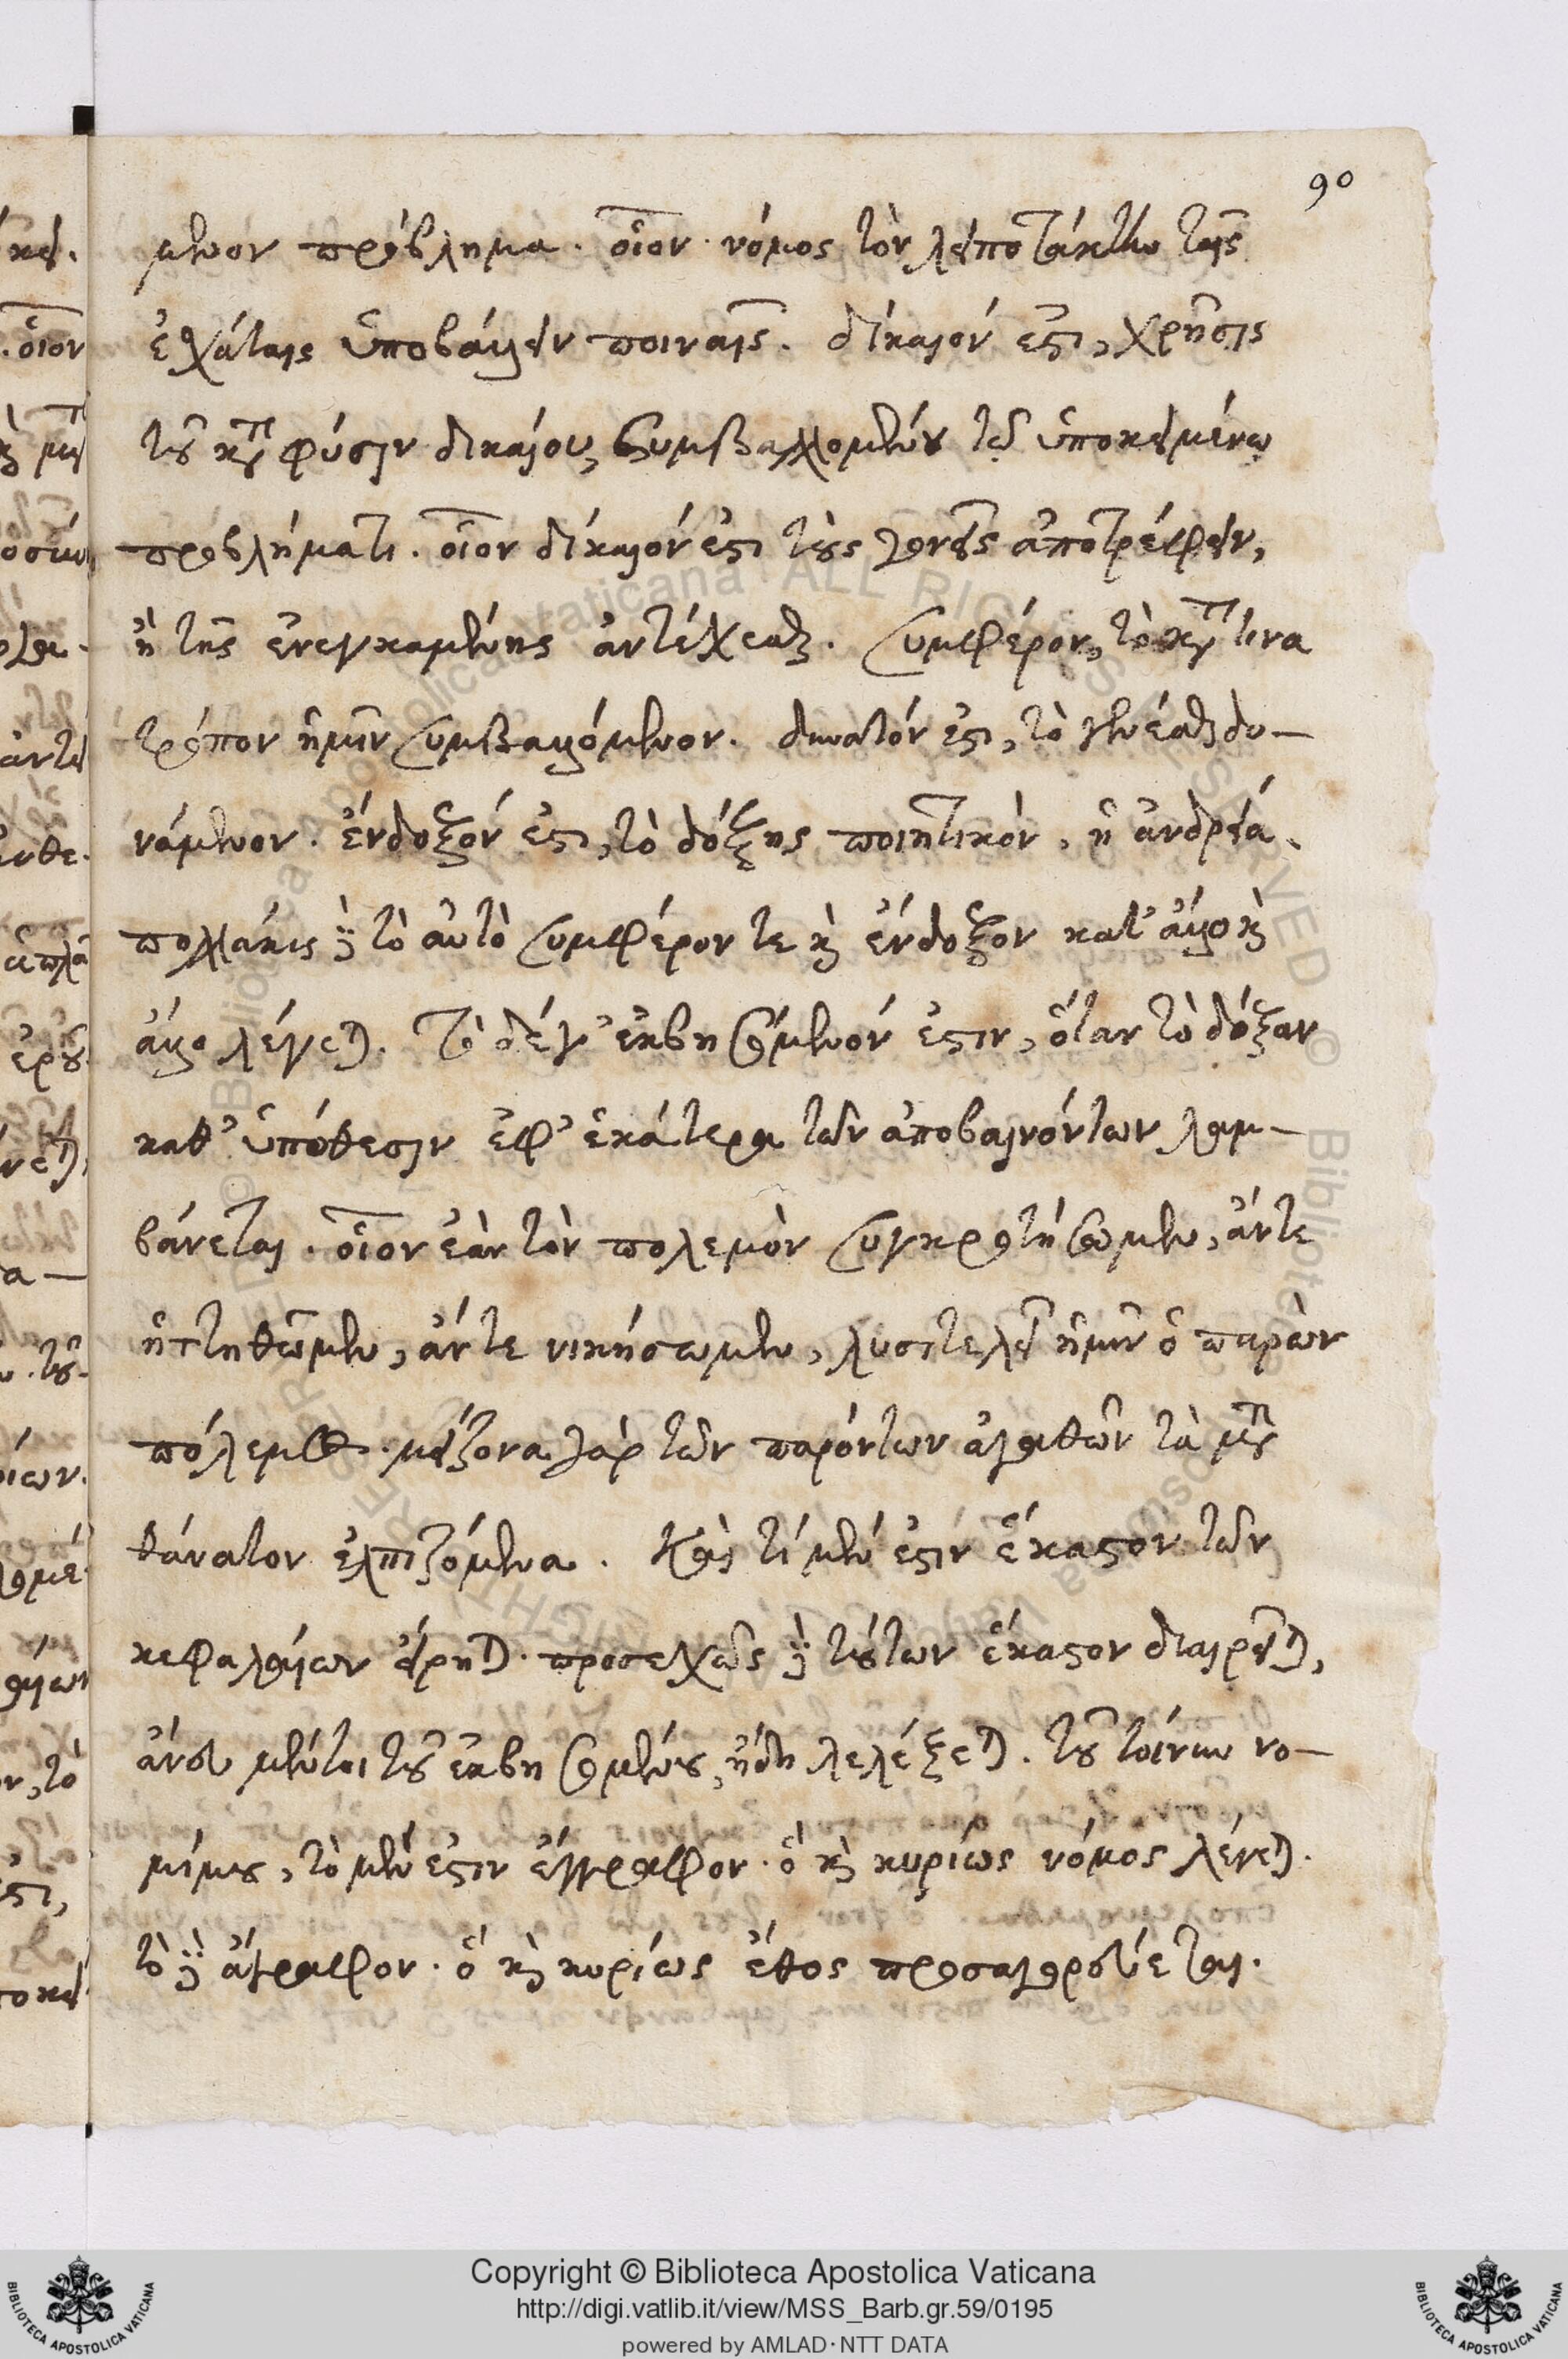 90
μενον πρόβλημα. οἷον. νόμος τὸν λειποτάκτην ταῖς
ἐσχάταις ὑποβάλλειν ποιναῖς. δίκαιόν ἐστι, χρῆσις
τοῦ κατὰ φύσιν δικαίου, συμβαλλομένου τῷ ὑποκειμένῳ
προβλήματι. οἷον δίκαιόν ἐστι τοὺς γονεῖς ἀποτρέφειν,
ἢ τῆς ἐνεγκαμένης ἀντέχεσθαι. συμφέρον, τὸ κατά τινα
τρόπον ἡμῖν συμβαλλόμενον. δυνατόν ἐστι, τὸ γενέσθαι δυ-
νάμενον. ἔνδοξόν ἐστι, τὸ δόξης ποιητικόν, ἢ ἀνδρεία.
πολλάκις δὲ τὸ αὐτὸ συμφέρον τε καὶ ἔνδοξον κατ' ἄλλο καὶ
ἄλλο λέγεται. Τὸ δέ γ' ἐκβησόμενόν ἐστιν, ὅταν τὸ δόξαν
καθ' ὑπόθεσιν ἐφ' ἑκάτερα τῶν ἀποβαινόντων λαμ-
βάνεται. οἷον ἐὰν τὸν πολεμὸν συγκροτήσωμεν, ἄν τε
ἡττηθῶμεν, ἄν τε νικήσωμεν, λυσιτελεῖ ἡμῖν ὁ παρὼν
πόλεμος. μείζονα γὰρ τῶν παρόντων ἀγαθῶν τὰ μετὰ
θάνατον ἐλπιζόμενα. Καὶ τί μέν ἐστιν ἕκαστον τῶν
κεφαλαίων εἴρηται. προσεχῶς δὲ τούτων ἕκαστον διαιρεῖται,
ἄνευ μέντοι τοῦ ἐκβησομένου, ἤδη λελέξεται. τοῦ τοίνυν νο-
μίμου, τὸ μέν ἐστιν ἔγγραφον. ὃ καὶ κυρίως νόμος λέγεται.
τὸ δὲ ἄγραφον. ὃ καὶ κυρίως ἔθος προσαγορεύεται.
Copyright © Biblioteca Apostolica Vaticana
http://digi.vatlib.it/view/MSS_Barb.gr.59/0195
powered by AMLAD·NTT DATA
BIBLIOTECA APOSTOLICA VATICANA
BIBLIOTECA APOSTOLICA VATICANA